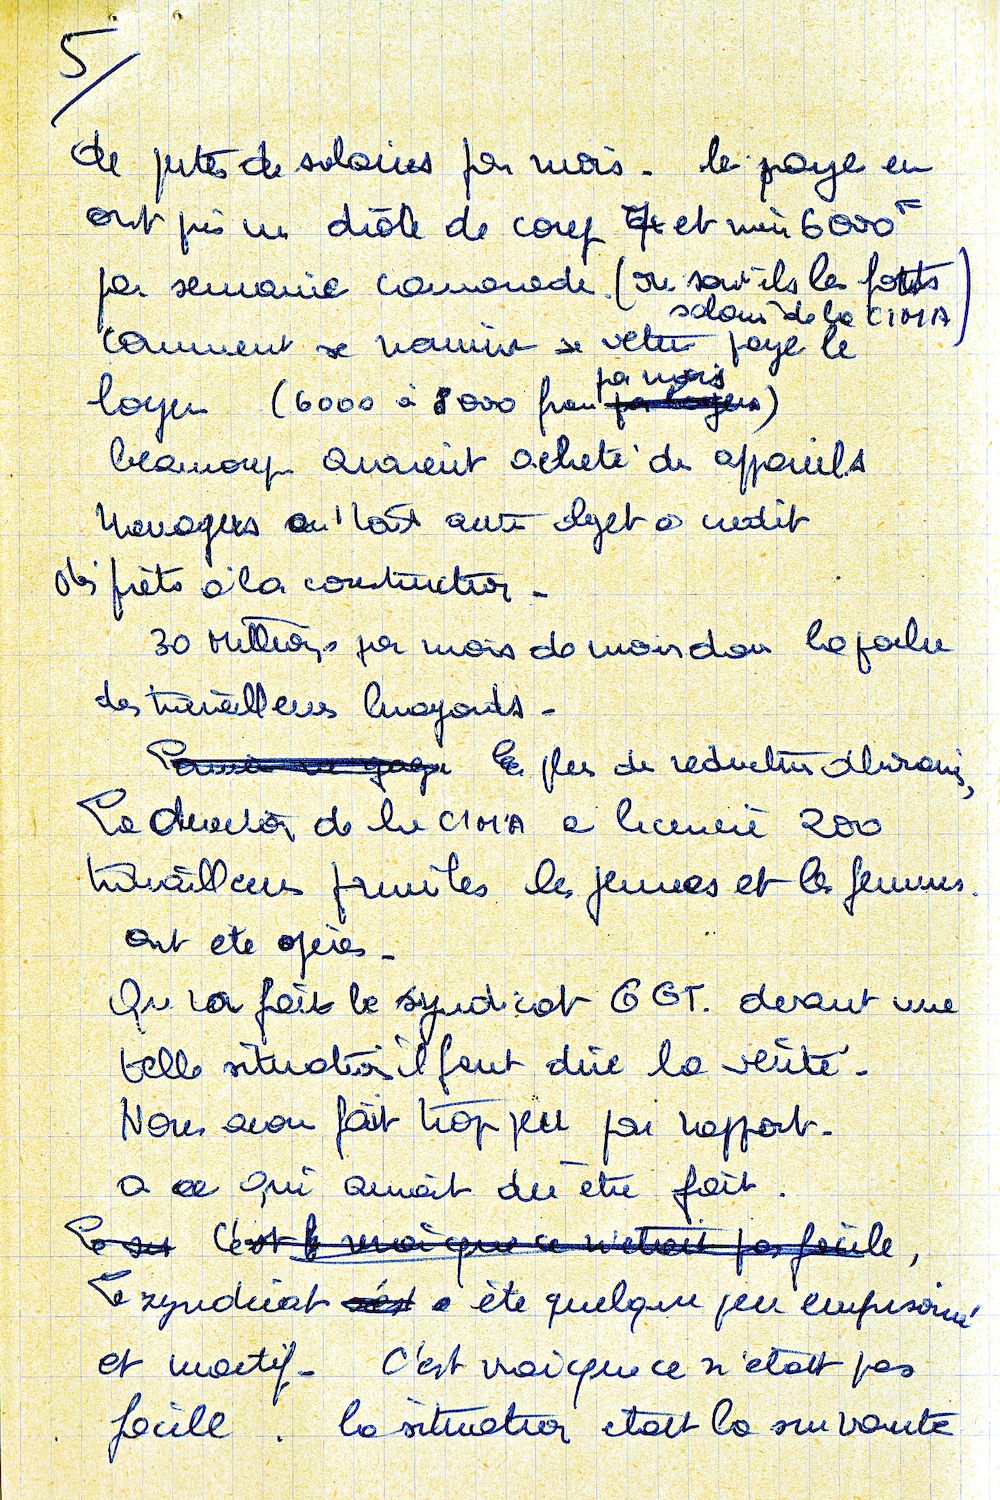 5/
de pertes de salaires par mois. les payes en
ont pris un drôle de coup et mêm 6000 F
par semaine camarade. (où sont ils les forts
salair de la CIMA)
comment se nourrir se vêtir payé le
loyer (6000 à 8000 fran par mois)
beaucoup avaient acheté des appareils
menagers ou tout autre objet a credit
des prêts à la construction -
30 Millions par mois de moins dans la poche
des travailleurs
En plus de reduction d'horaires,
La direction de la CIMA a licencié 200
travailleurs parmi les les jeunes et les femmes.
ont ete
Qu'a fait le syndicat CGT. devant une
telle situation il faut dire la vérité.
Nous avon fait trop peu par rapport.
a ce qui aurait dû être fait.
Le C'est vrai que ce n'etait pas facile,
Le syndicat a été quelque peu emprisonné
et C'est vrai que ce n'etait pas
facile. la situation etait la suivante